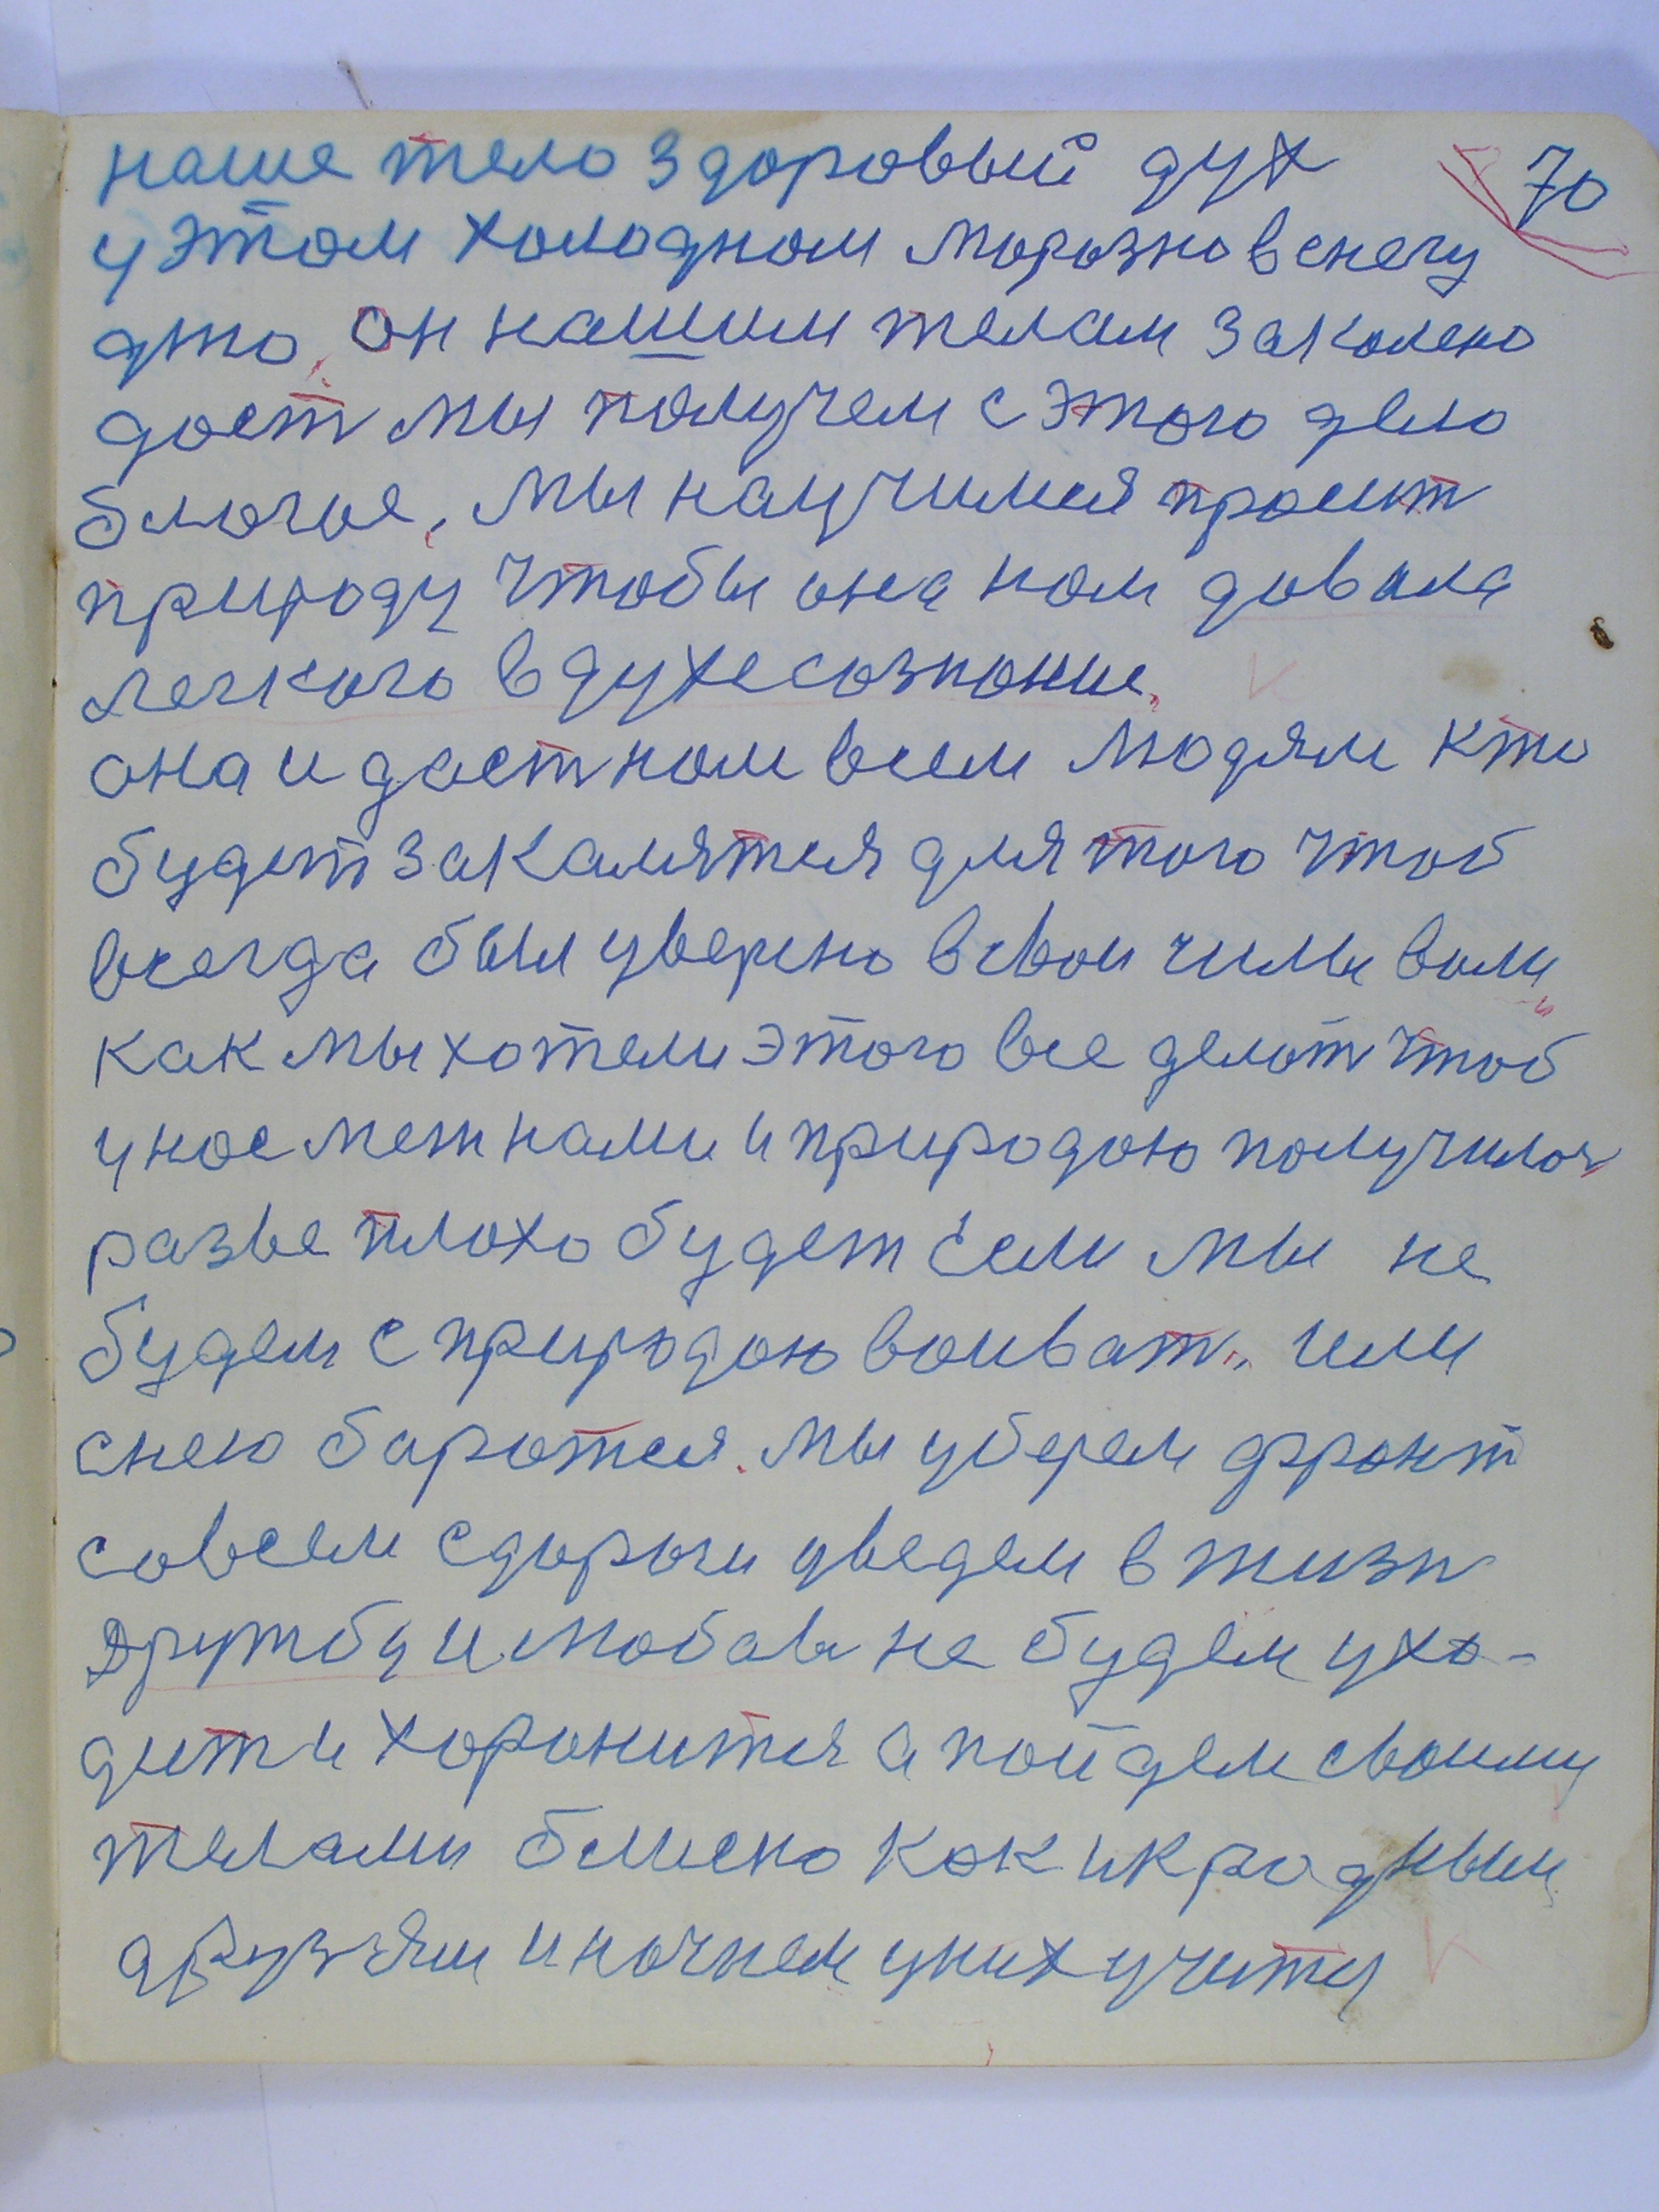 70
наше тело здоровый дух
у этом холодном морозно в снегу
дто, он нашим телам заколено
дост мы получем с этого дело
благое, мы научимся просит
природу чтобы она ном довала
легкого в духе созноние,
она и дост ном всем людям кто
будет закалятся для того чтоб
всегда был уверено в свои чилы воли
как мы хотели этого все делот чтоб
у нос меж нами и природою получилось
разве плохо будет если мы не
будем с природою воиват, или
с нею баротся. мы уберем фронт
совсем с дороги уведем в жизн
дружбу и любов не будем ухо-
дит и хоронится а пойдем своими
телами блиско как и к родным
друзям и ночнем у них учиту